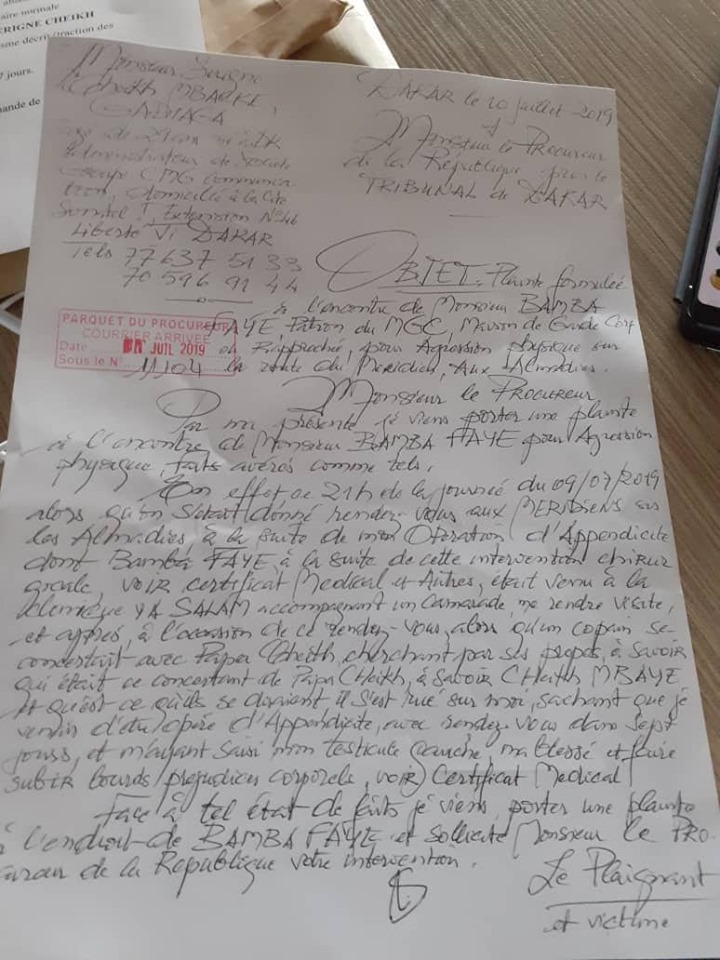 aire normale
ERIGNE CHEIKH
7 jours.
ande de
Monsieur Serigne
Cheikh MBACKE
GADIAGA
Administrateur de Société
Groupe CMG Communica
tion, domicilié à la Cité
Sonatel 1, Extension N°46
Liberté VI DAKAR
Tels 77 637 51 33
70 596 91 44
DAKAR le 10 juillet 2019
Monsieur le Procureur
de la République près le
TRIBUNAL de DAKAR
OBJET: Plainte formulée
à l'encontre de Monsieur BAMBA
FAYE Patron du MGC, Maison de Garde Corp
et Rapproché, pour Agression physique sur
la route du Méridien, Aux Almadies.
PARQUET DU PROCUREUR
COURRIER ARRIVÉE
Date JUIL 2019
Sous le N° 11104
Monsieur le Procureur,
Par ma présente, je viens porter une plainte
à l'encontre de Monsieur BAMBA FAYE pour Agression
physique, faits avérés comme tels.
En effet ce 21h de la journée du 09/07/2019
alors qu'on s'était donné rendez-vous aux MERIDIENS sur
les Almadies, à la suite de mon Opération d'Appendicite
dont Bamba FAYE à la suite de cette intervention chirur
gicale, voir certificat Medical et Autres, était venu à la
clinique YA SALAM accompagnant un camarade, me rendre visite,
et après, à l'occasion de ce rendez-vous, alors qu'un copain se
concertait avec Papa Cheikh, cherchant par ses propos, à savoir
qui était ce concertant de Papa Cheikh, à savoir Cheikh MBAYE
et qu'est ce qu'ils se disaient il s'est rué sur moi, sachant que je
venais d'être opéré d'Appendicite, avec rendez-vous dans sept
jours, et m'ayant saisi mon testicule gauche m'a blessé et faire
subir lourds préjudices corporels, voir Certificat Medical
Face à tel état de faits je viens porter une plainte
à l'endroit de BAMBA FAYE et sollicite Monsieur le PRO-
cureur de la République votre intervention.
Le Plaignant
et victime